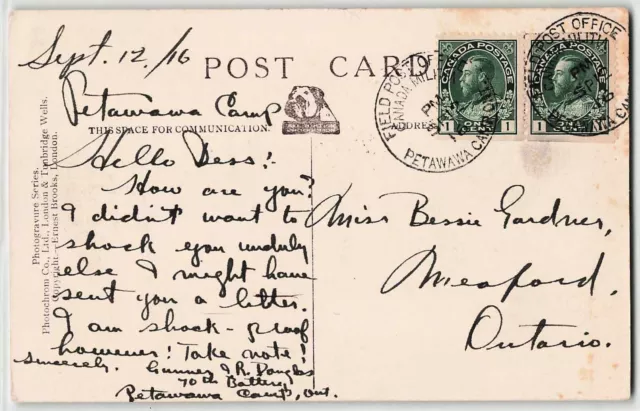 Sept. 12/16
POST CARD
Petawawa Camp
THIS SPACE FOR COMMUNICATION.
ADDRESS
Hello Bess!
How are you?
I didn't want to
shock you unduly
else I might have
sent you a letter.
I am shock-proof
however! Take note!
Sincerely.
Gunner J. R. Douglas
70th Battery
Petawawa Camp, Ont.
Miss Bessie Gardner,
Meaford,
Ontario.
Photogravure Series.
Photochrom Co., Ltd., London & Tunbridge Wells.
Copyright—Ernest Brooks, London.
FIELD POST OFFICE
CANADA MILITIA
PM
PETAWAWA CAMP
CANADA POSTAGE
1 ONE CENT 1
FIELD POST OFFICE
CANADA POSTAGE
1 ONE CENT